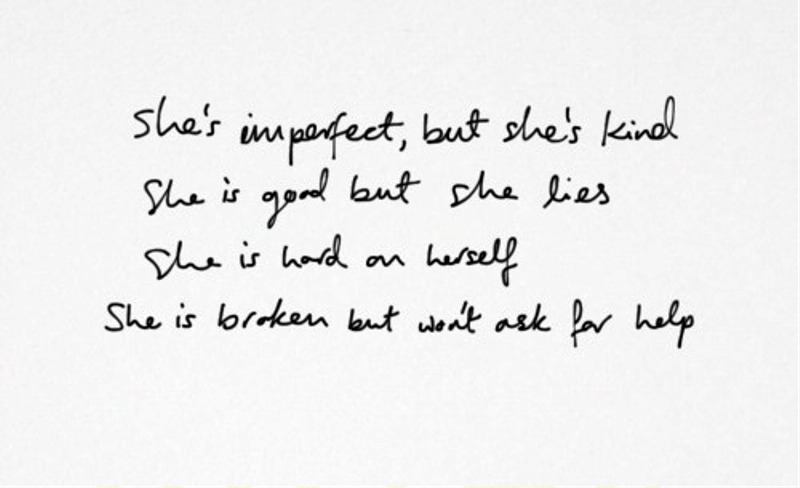 She's imperfect, but she's kind
She is good but she lies
She is hard on herself
She is broken but won't ask for help